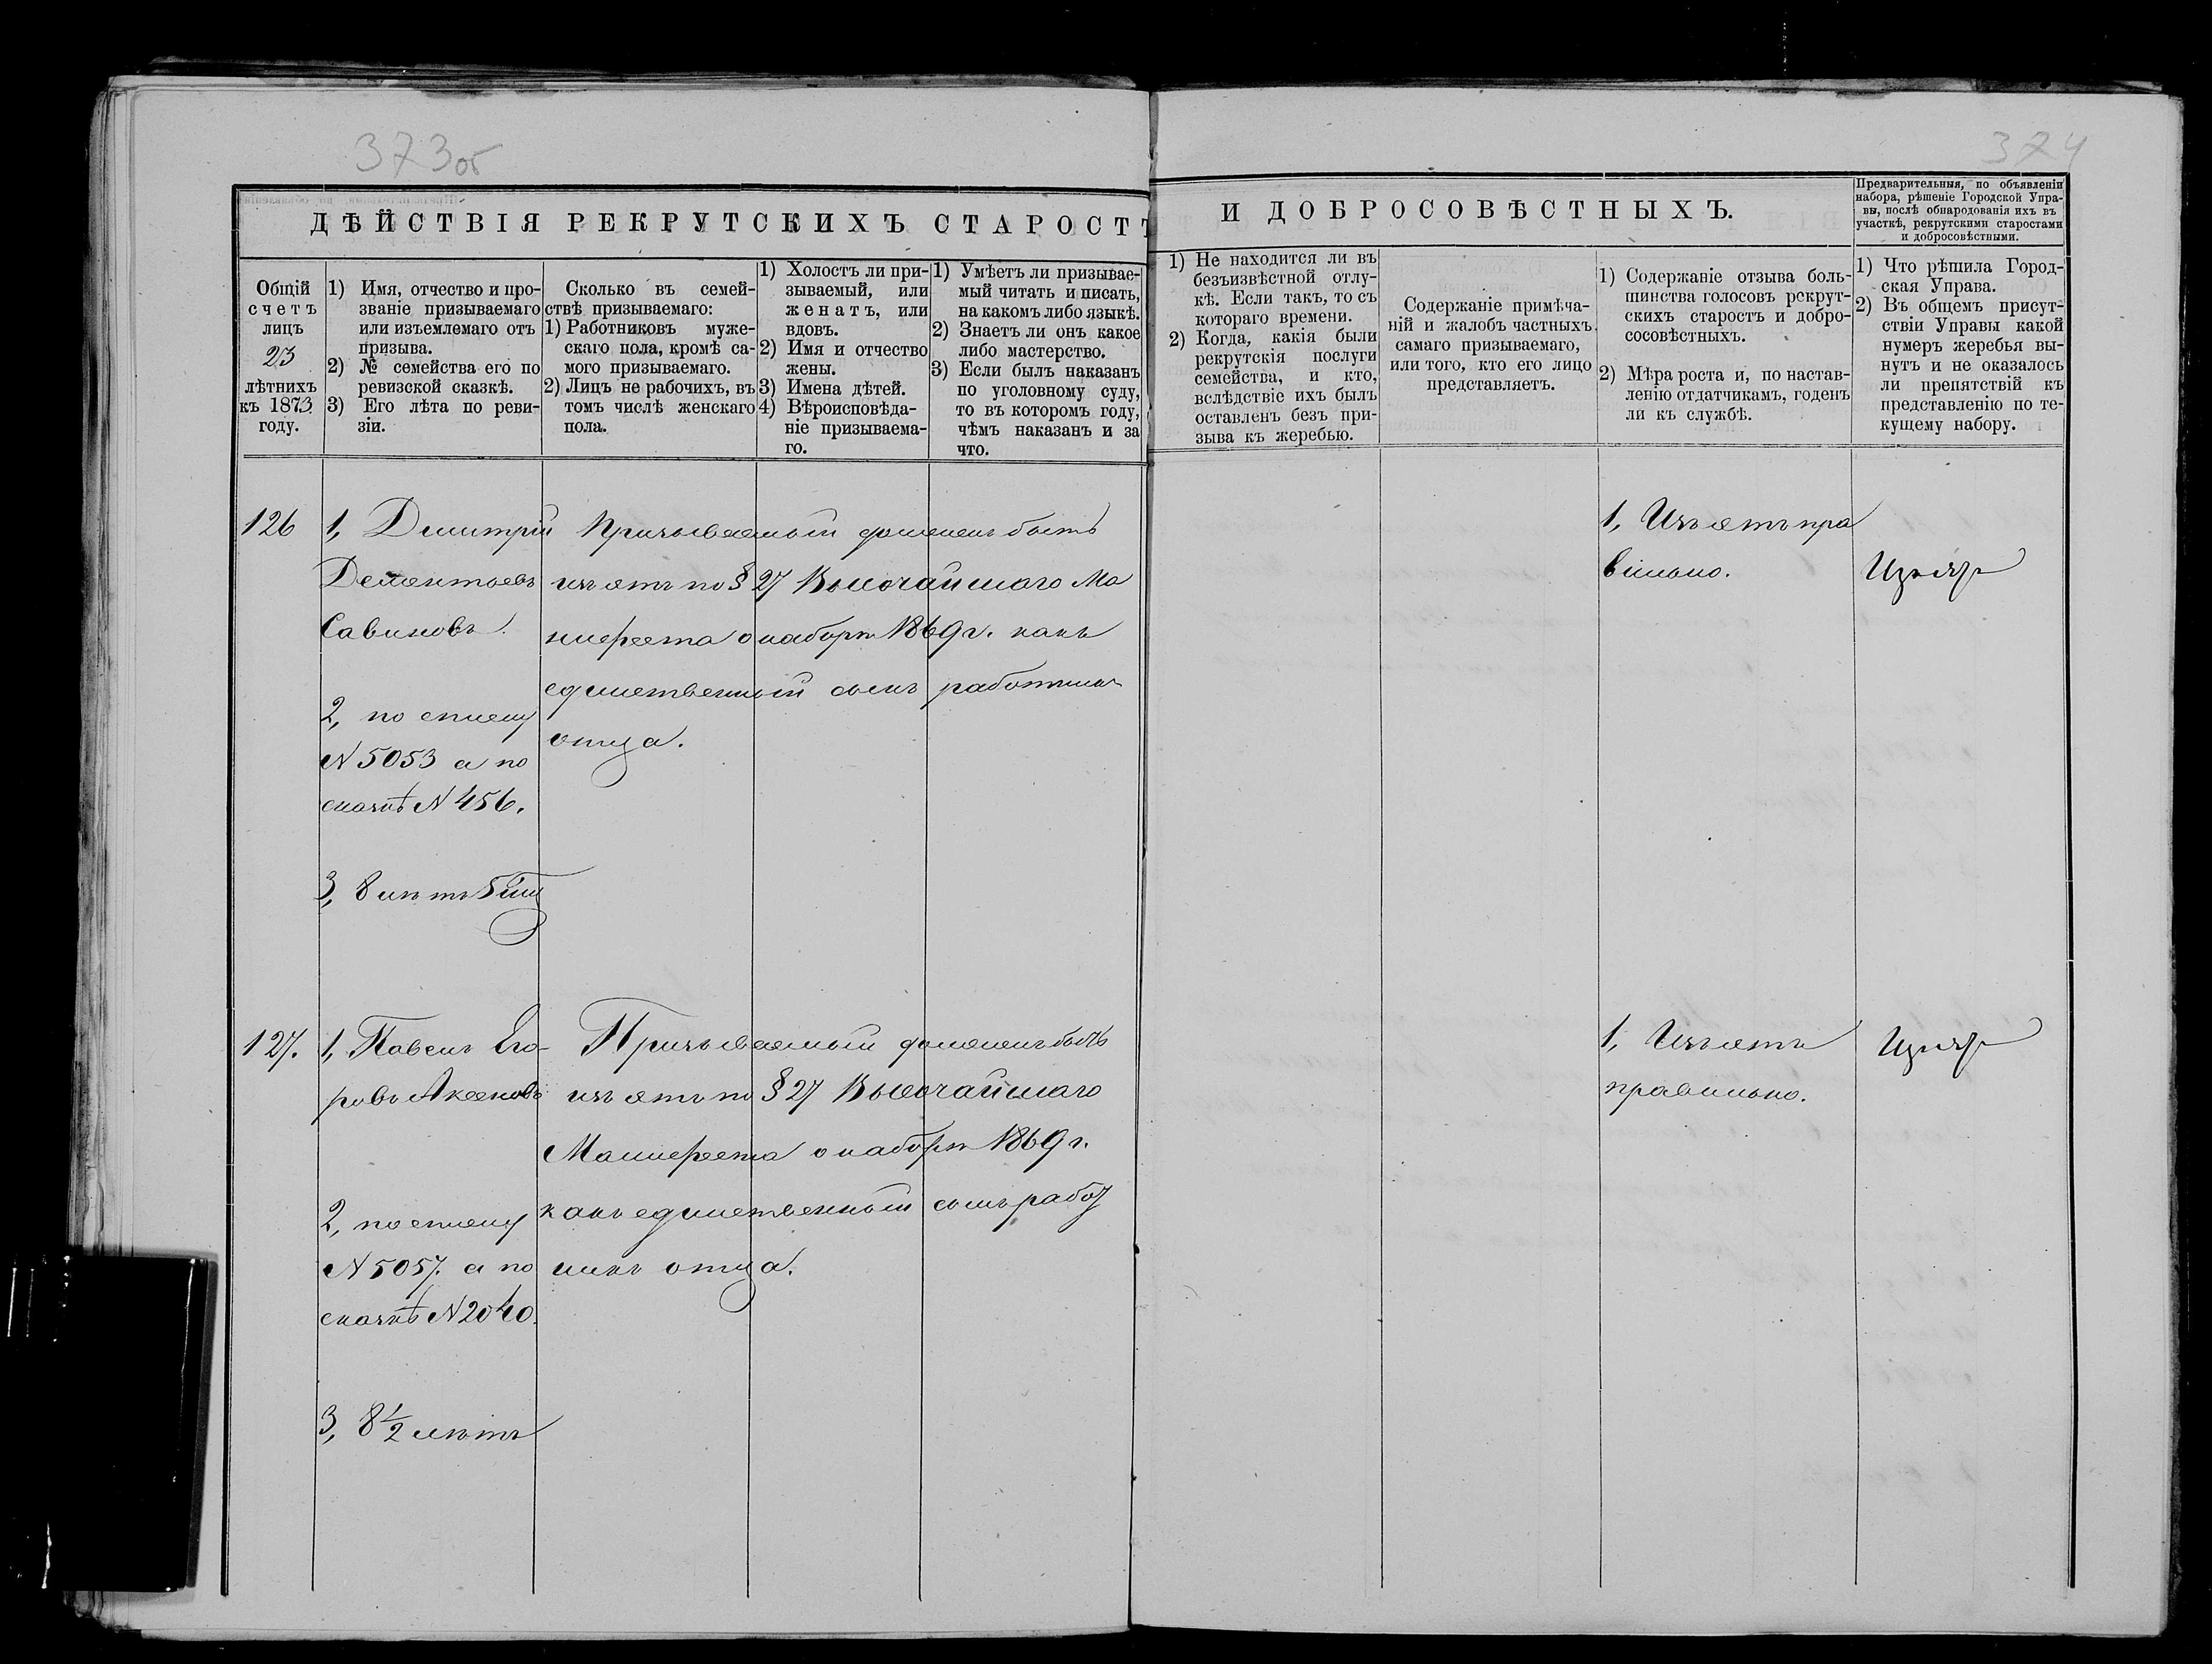 373об
374
ДѢЙСТВІЯ РЕКРУТСКИХЪ СТАРОСТЪ
И ДОБРОСОВѢСТНЫХЪ.
Предварительныя, по объявленіи
набора, рѣшеніе Городской Упра-
вы, послѣ обнародованія ихъ въ
участкѣ, рекрутскими старостами
и добросовѣстными.
Общій
счетъ
лицъ
23
лѣтнихъ
къ 1873
году.
1) Имя, отчество и про-
званіе призываемаго
или изъемлемаго отъ
призыва.
2) № семейства его по
ревизской сказкѣ.
3) Его лѣта по реви-
зіи.
Сколько въ семей-
ствѣ призываемаго:
1) Работниковъ муже-
скаго пола, кромѣ са-
мого призываемаго.
2) Лицъ не рабочихъ, въ
томъ числѣ женскаго
пола.
1) Холостъ ли при-
зываемый, или
женатъ, или
вдовъ.
2) Имя и отчество
жены.
3) Имена дѣтей.
4) Вѣроисповѣда-
ніе призываема-
го.
1) Умѣетъ ли призывае-
мый читать и писать,
на какомъ либо языкѣ.
2) Знаетъ ли онъ какое
либо мастерство.
3) Если былъ наказанъ
по уголовному суду,
то въ которомъ году,
чѣмъ наказанъ и за
что.
1) Не находится ли въ
безъизвѣстной отлу-
кѣ. Если такъ, то съ
котораго времени.
2) Когда, какія были
рекрутскія послуги
семейства, и кто,
вслѣдствіе ихъ былъ
оставленъ безъ при-
зыва къ жеребью.
Содержаніе примѣча-
ній и жалобъ частныхъ,
самаго призываемаго,
или того, кто его лицо
представляетъ.
1) Содержаніе отзыва боль-
шинства голосовъ рекрут-
скихъ старостъ и добро-
сосовѣстныхъ.
2) Мѣра роста и, по настав-
ленію отдатчикамъ, годенъ
ли къ службѣ.
1) Что рѣшила Город-
ская Управа.
2) Въ общемъ присут-
ствіи Управы какой
нумеръ жеребья вы-
нутъ и не оказалось
ли препятствій къ
представленію по те-
кущему набору.
126
1, Дмитрій
Дементьевъ
Савиновъ.
2, по списку
N 5053 а по
сказкѣ N 456.
3, 8 лѣтъ 5
Призываемый долженъ быть
изъятъ по § 27 Высочайшаго Ма
нифеста о наборѣ 1869 г. какъ
единственный сынъ работникъ
отца.
1, Изъятъ пра
вильно.
Изъятъ
127.
1, Павелъ Его-
ровъ Аксеновъ
2, по списку
N 5057. а по
сказкѣ N 2040.
3, 8½ лѣтъ
Призываемый долженъ быть
изъятъ по § 27 Высочайшаго
Манифеста о наборѣ 1869 г.
какъ единственный сынъ работ
никъ отца.
1, Изъятъ
правильно.
Изъятъ